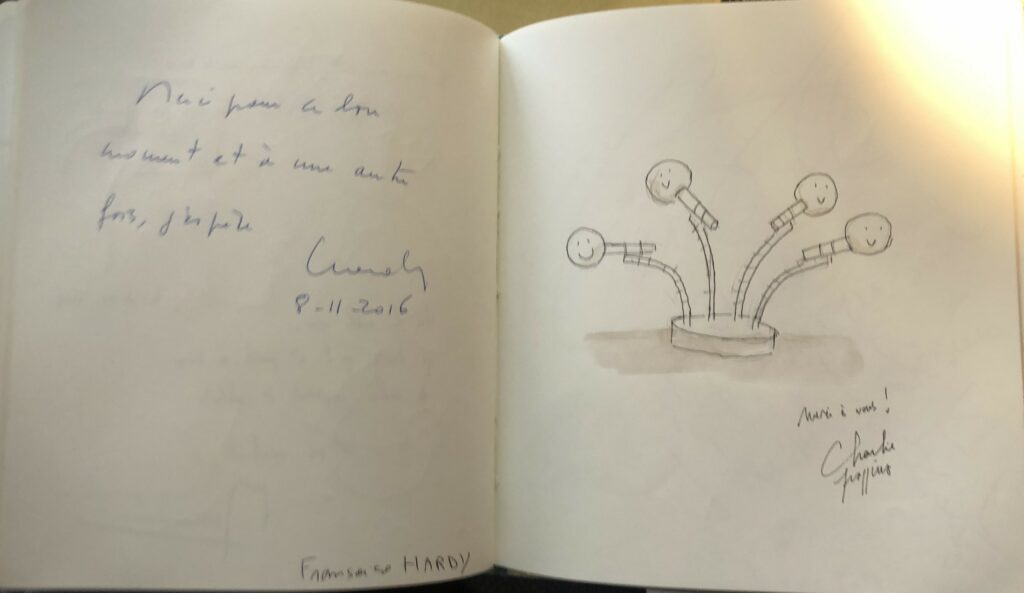 Merci pour ce bon
moment et à une autre
fois, j'espère
8-11-2016
Françoise HARDY
Merci à vous !
Charlie
Poppins